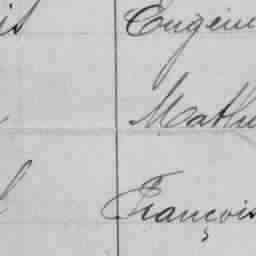 is Eugène
Mathu
l François